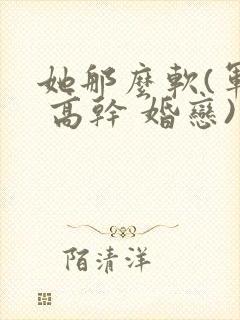 她那麼軟(軍
高幹 婚戀)
陌清洋